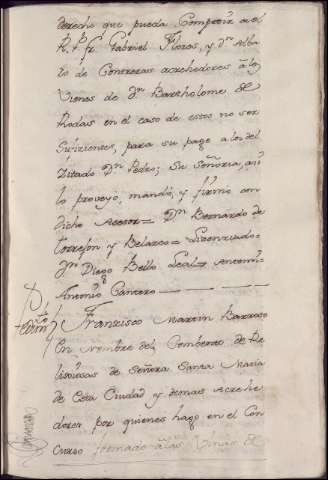 derecho que pueda Competir a el
R. P. fr. Gabriel Flores, y Dn. Alba
ro de Contreras acrehedores à los
Vienes de Dn. Bartholome de
Rodas en el caso de estos no ser
Suficientes, para su pago a los del
Zitado Dn. Pedro; Su Señoria, asi
lo proveyò, mandò, y firmò con
dicho Asesor = Dn. Bernardo de
torrejon y Belasco = Lizenciado =
Dn. Diego Bello Leal = Antemi
Antonio Cantero
Francisco Martin Barroso
En nombre del Combento de Re
lisiosas de Señora Santa Maria
de Esta Ciudad y demas acrehe
dores por quienes hago en el Con
curso formado à los Vienes de